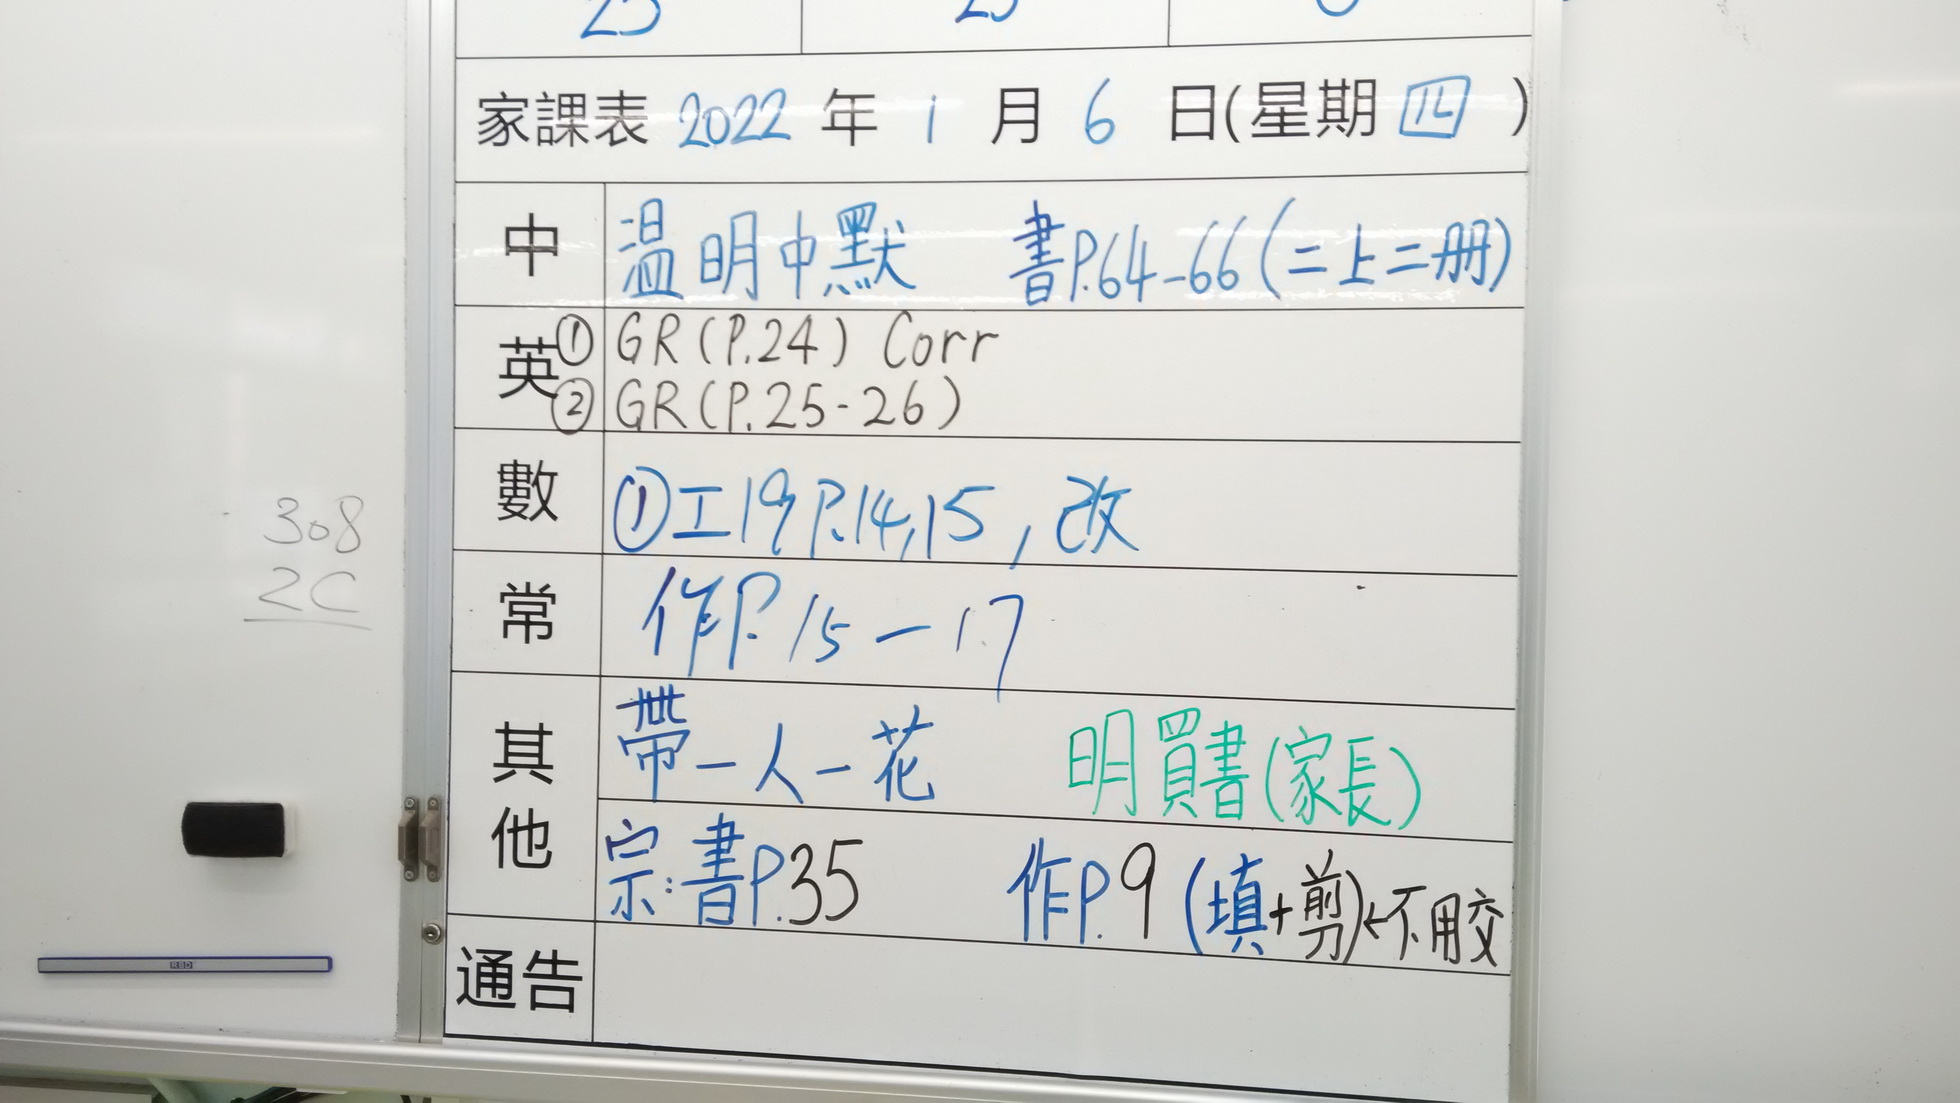 25 25 0
家課表 2022 年 1 月 6 日(星期 四 )
中 温明中默 書P.64-66(二上二册)
英 ① GR(P.24) Corr
② GR(P.25-26)
數 ①工19 P.14,15, 改
常 作P.15-17
其他 帶一人一花 明買書(家長)
宗:書P.35 作P.9 (填+剪)←不用交
通告
308
2C
RBD